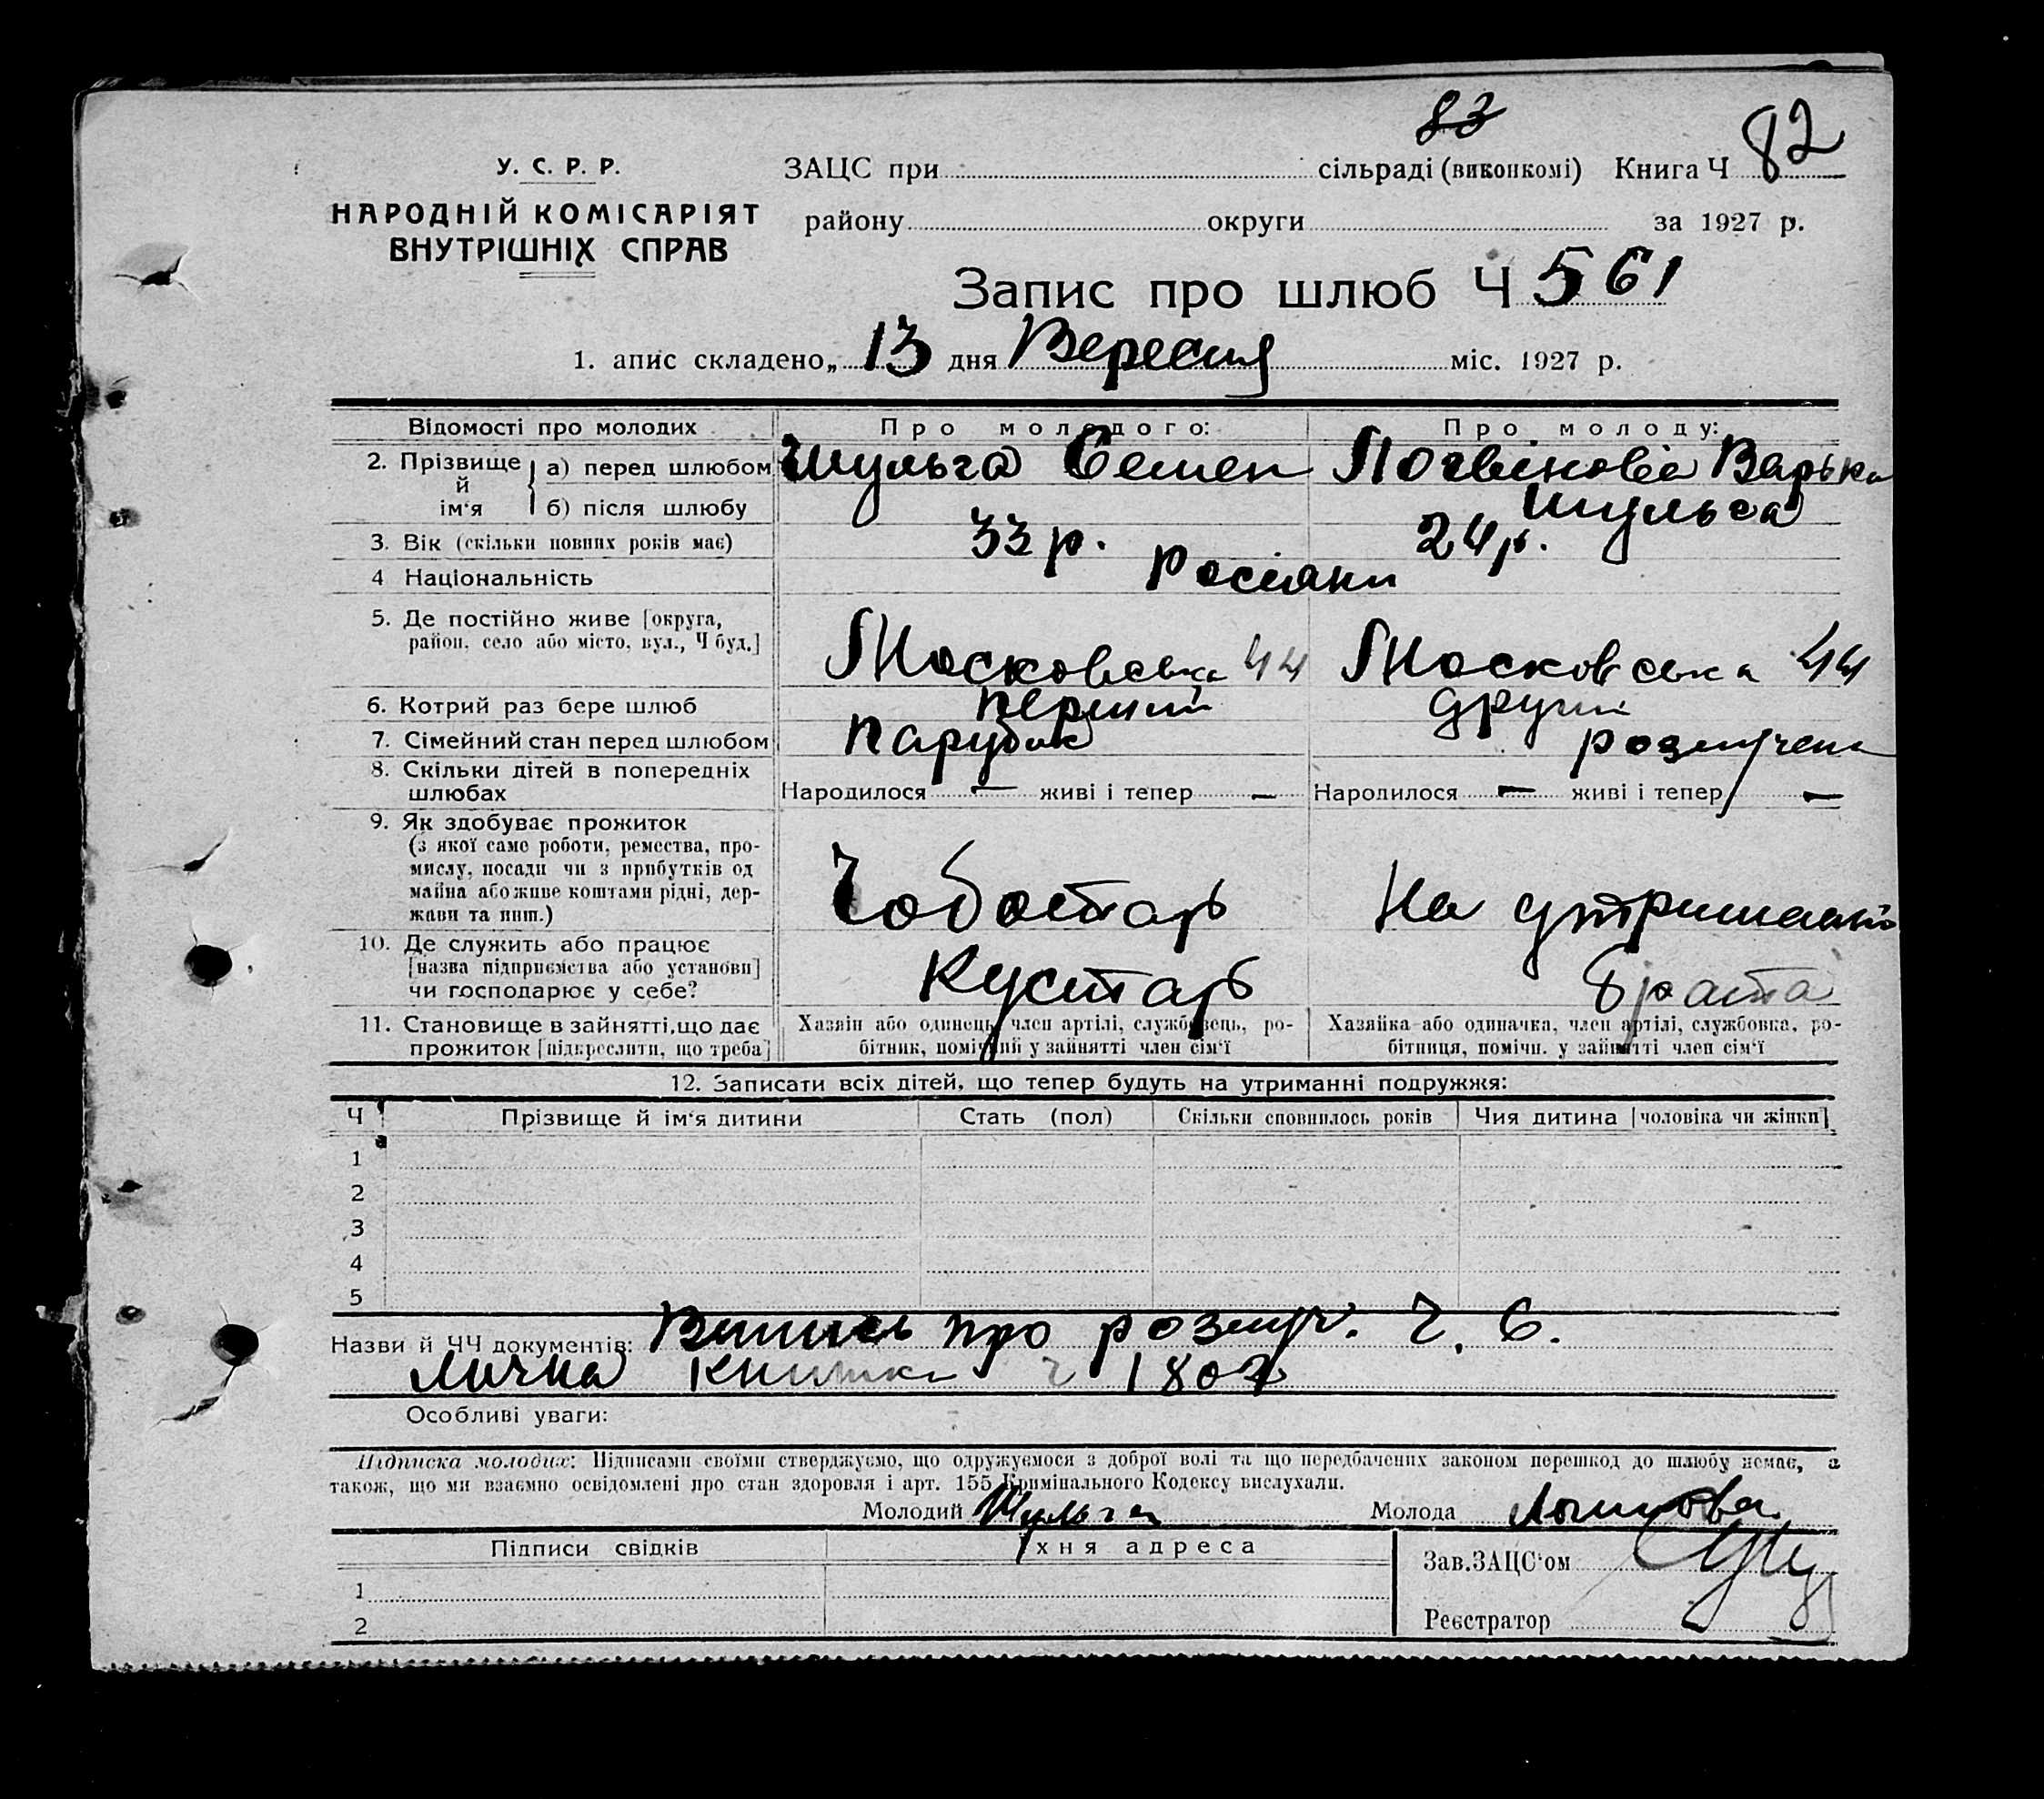 83
82
У. С. Р. Р.
НАРОДНІЙ КОМІСАРІЯТ
ВНУТРІШНІХ СПРАВ
ЗАЦС при сільраді (виконкомі) Книга Ч
району округи за 1927 р.
Запис про шлюб Ч 561
1. апис складено „ 13 дня Вересня міс. 1927 р.
Відомості про молодих Про молодого: Про молоду:
2. Прізвище й ім'я а) перед шлюбом Шульга Семен Логвінова Варька
б) після шлюбу Шульга
3. Вік (скільки повних років має) 33 р. 24 р.
4 Національність Росіяни
5. Де постійно живе [округа,
район, село або місто, вул., Ч буд.] Московська 44 Московська 44
6. Котрий раз бере шлюб перший другий
7. Сімейний стан перед шлюбом парубок розлучена
8. Скільки дітей в попередніх
шлюбах Народилося — живі і тепер — Народилося — живі і тепер —
9. Як здобуває прожиток
(з якої саме роботи, ремества, про-
мислу, посади чи з прибутків од
майна або живе коштами рідні, дер-
жави та инш.) Чоботарь На утриманні
10. Де служить або працює
[назва підприємства або установи]
чи господарює у себе? Кустарь брата
11. Становище в зайнятті, що дає
прожиток [підкреслити, що треба]
Хазяін або одинець, член артілі, службовець, ро-
бітник, помічний у зайнятті член сім'ї
Хазяйка або одиначка, член артілі, службовка, ро-
бітниця, помічн. у зайнятті член сім'ї
12. Записати всіх дітей, що тепер будуть на утриманні подружжя:
Ч Прізвище й ім'я дитини Стать (пол) Скільки сповнилось років Чия дитина [чоловіка чи жінки]
1
2
3
4
5
Назви й ЧЧ документів: Випись про розлуч. Ч. 6.
Лична книжка ч 1807
Особливі уваги:
Підписка молодих: Підписами своїми стверджуємо, що одружуємося з доброї волі та що передбачених законом перешкод до шлюбу немає, а
також, що ми взаємно освідомлені про стан здоровля і арт. 155 Кримінального Кодексу вислухали.
Молодий Шульга Молода
Підписи свідків Їхня адреса
Зав.ЗАЦС'ом
1
Реєстратор
2